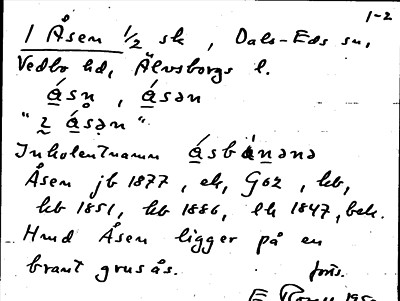 1-2
1 Åsen 1/2 sk, Dals-Eds sn,
Vedbo hd, Älvsborgs l.
ásn, ásən
"i åsən"
Inbolentnamn ásbónənə
Åsen jb 1877, ek, G02, hb,
hb 1851, hb 1886, lk 1847, bek.
Hmd Åsen ligger på en
brant grusås. forts.